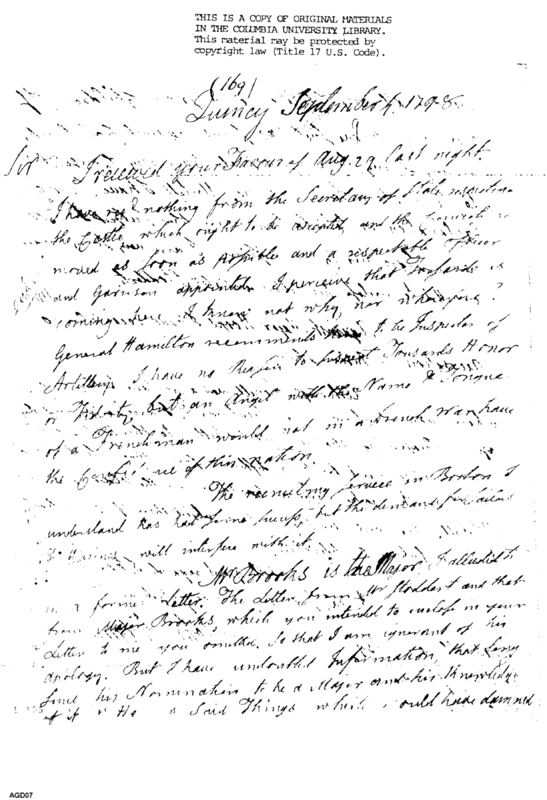 THIS IS A COPY OF ORIGINAL MATERIALS
IN THE COLUMBIA UNIVERSITY LIBRARY.
This material may be protected by
copyright law (Title 17 U.S. Code).
(169)
Quincy September 4. 1798
Sir
I received your Favour of Aug. 29 last night.
I have recd nothing from the Secretary of State respecting
the Castle which ought to be accepted, and the
moved as soon as possible and a respectable officer
and Garrison appointed. I perceive that Tousards is
coming here I know not why, nor wherefore?
General Hamilton recommends to be Inspector of
Artillery. I have no Reason to suspect Tousards Honor
or but an Angel with the Name & Tongue
of a Frenchman would not in a French War have
the of this nation.
The recruiting service in Boston I
understand has had some success, but the demand for sailors
& Marines will interfere with it
Mr Brooks is the Major I alluded to
in a former Letter. The Letter from Mr Stoddert and that
from Major Brooks, which you intended to inclose in your
Letter to me you omitted. So that I am ignorant of his
apology. But I have undoubted Information, that long
since his Nomination to be a Major and his knowledge
of it He Said Things which would have damned
AGD07